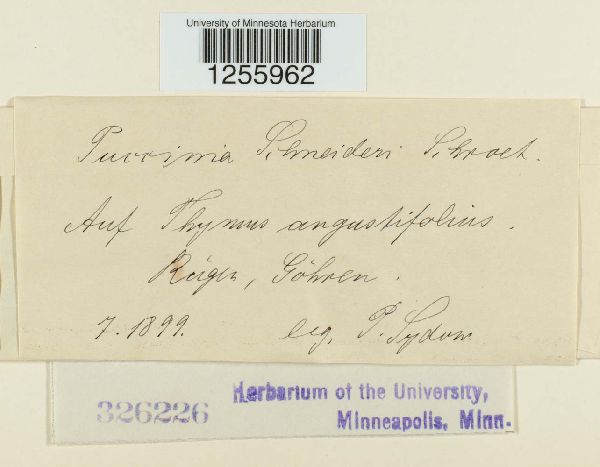 University of Minnesota Herbarium
1255962
Puccinia Schneideri Schroet.
Auf Thymus angustifolius.
Rügen, Göhren.
7. 1899. leg. P. Sydow
326226
Herbarium of the University,
Minneapolis, Minn.